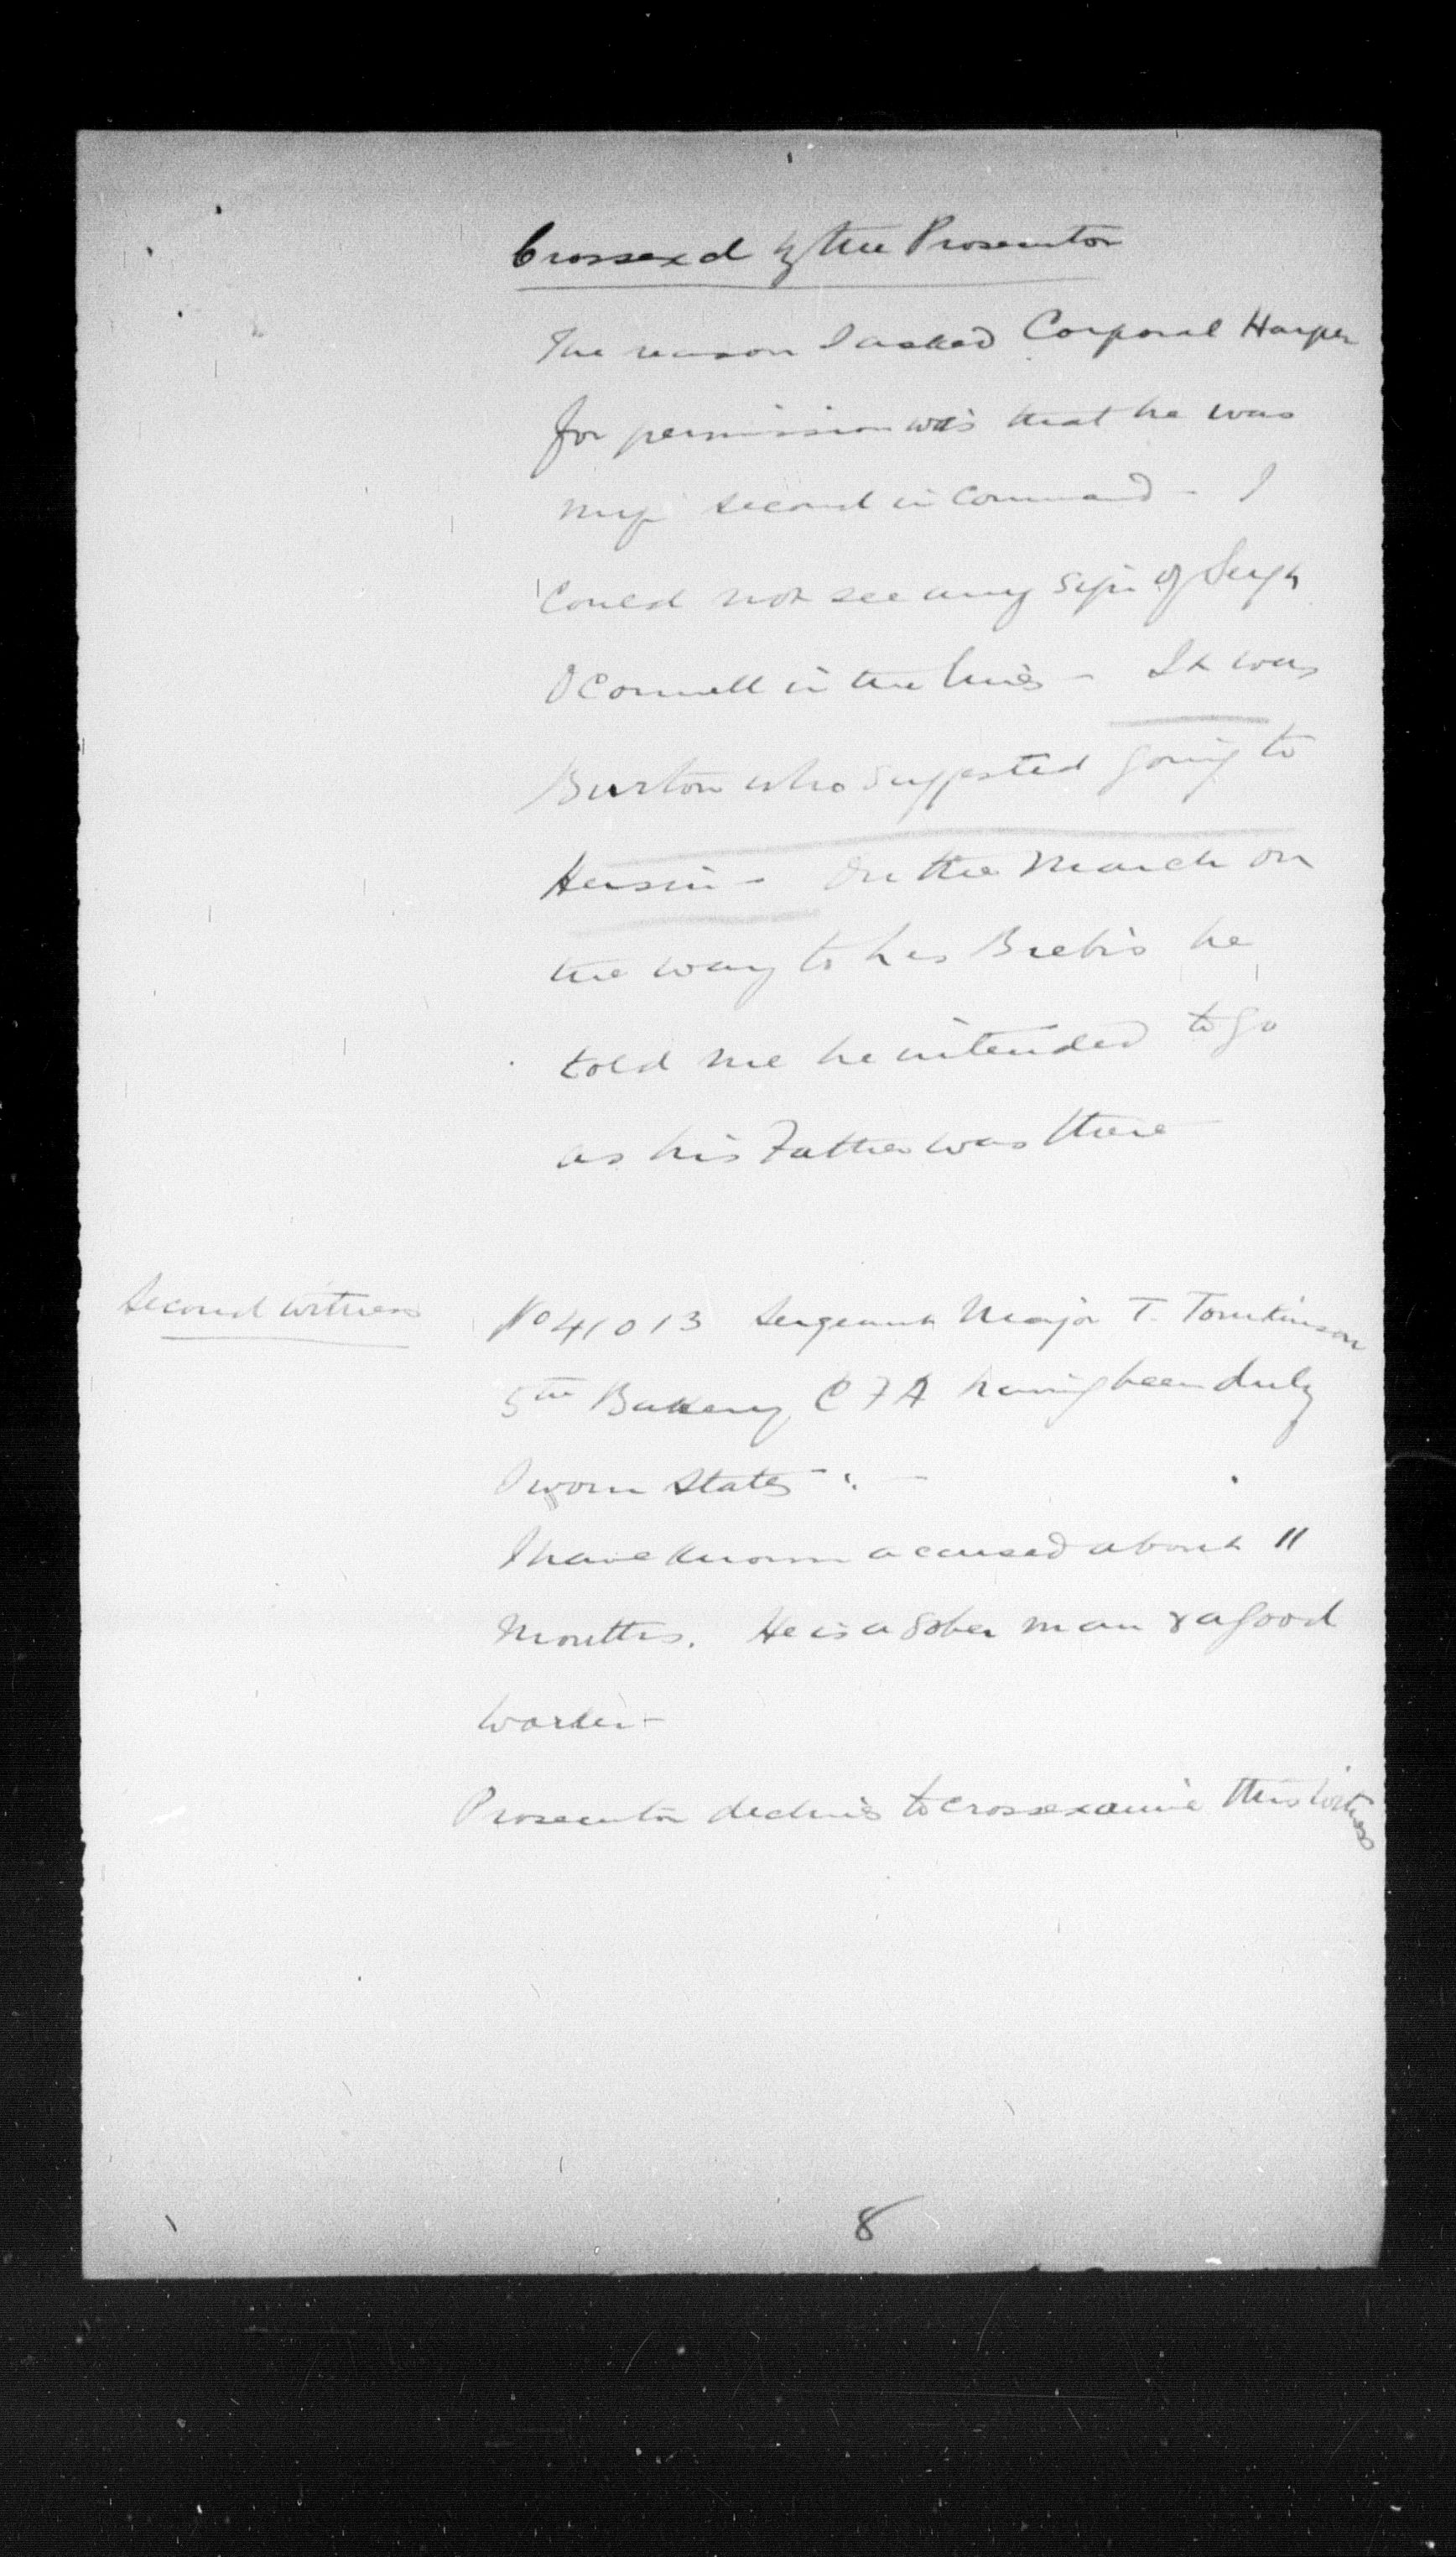 Crossexd by the Prosecutor
The reason I asked Corporal Harper
for permission was that he was
my second in Command - I
could not see any sign of Sergt
O'Connell in the lines - It was
Burton who suggested going to
Hersin - On the March on
the way to Les Brebis he
told me he intended to go
as his Father was there
Second Witness
No 41013 Sergeant Major T. Tomkinson
5th Battery C F A having been duly
Sworn States :-
I have known accused about 11
Months. He is a sober man & a good
worker -
Prosecutor declines to crossexamine this witness
8